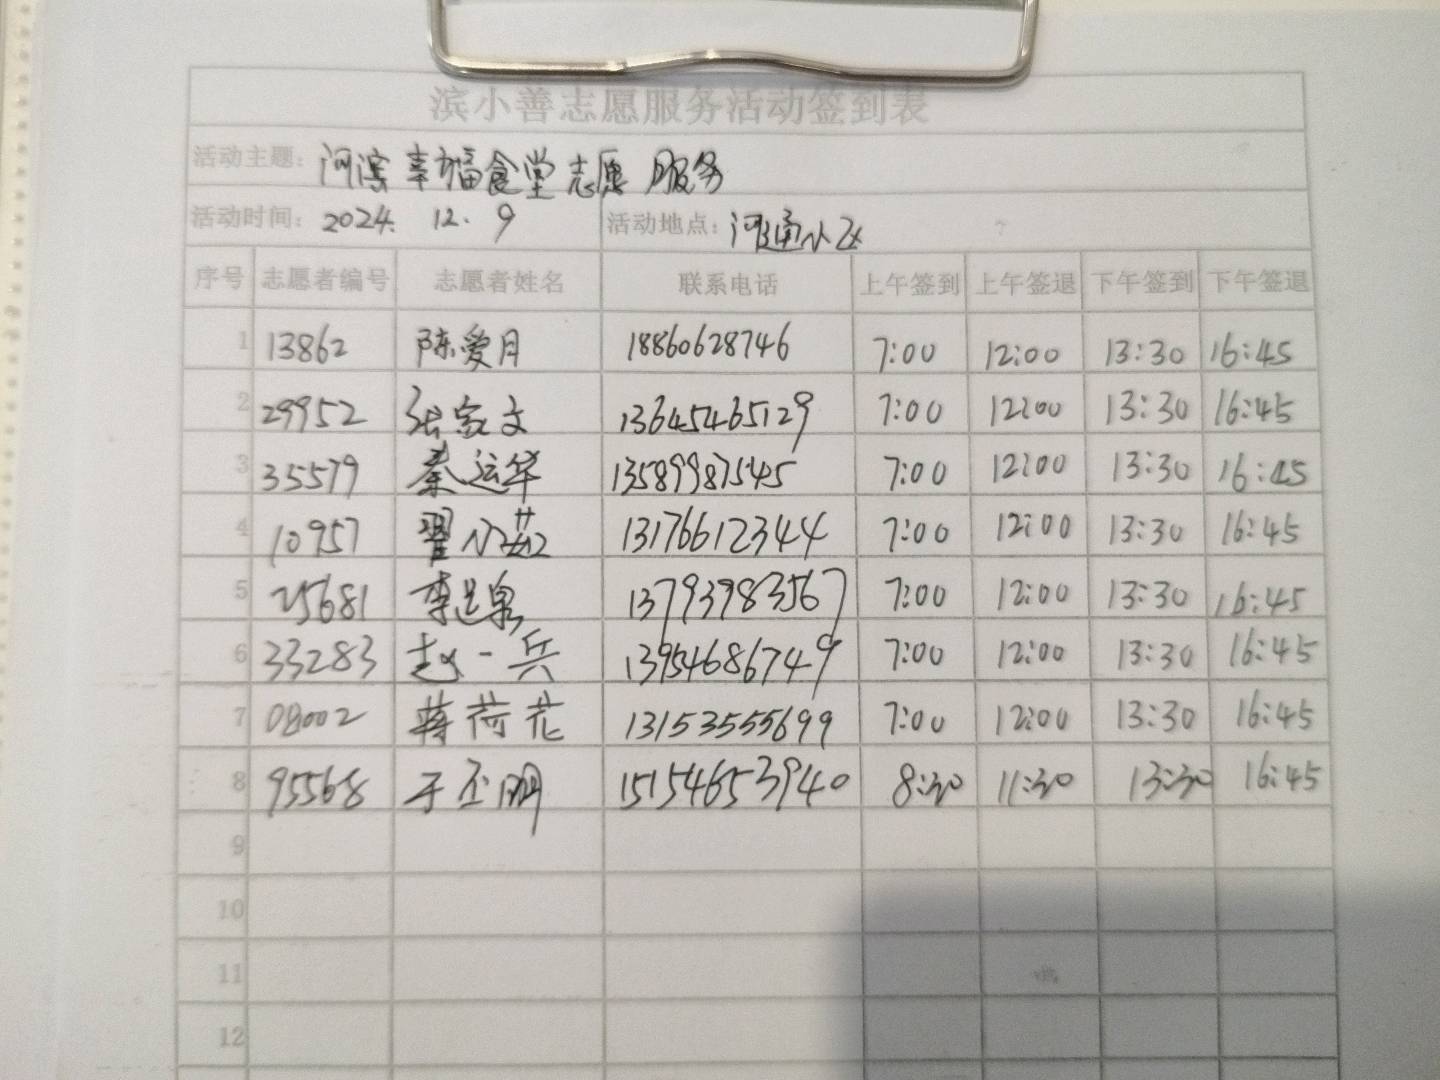 滨小善志愿服务活动签到表
活动主题: 河滨幸福食堂志愿服务
活动时间: 2024. 12. 9 活动地点: 河通小区
序号 志愿者编号 志愿者姓名 联系电话 上午签到 上午签退 下午签到 下午签退
1 13862 陈爱月 18860628746 7:00 12:00 13:30 16:45
2 29952 张家文 13645465129 7:00 12:00 13:30 16:45
3 35579 秦运华 13589987545 7:00 12:00 13:30 16:45
4 10957 翟小茹 13176612344 7:00 12:00 13:30 16:45
5 25681 李是泉 13793983567 7:00 12:00 13:30 16:45
6 33283 赵一兵 13954686749 7:00 12:00 13:30 16:45
7 08002 蒋荷花 13153555699 7:00 12:00 13:30 16:45
8 95568 于丕明 15154653940 8:30 11:30 13:30 16:45
9
10
11
12